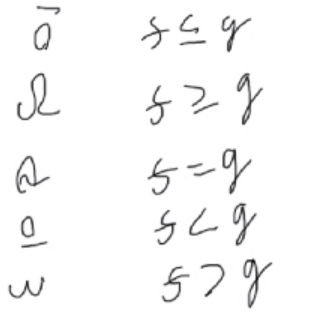 Ō f ≤ g
Ω f ≥ g
f = g
o̲ f < g
ω f > g